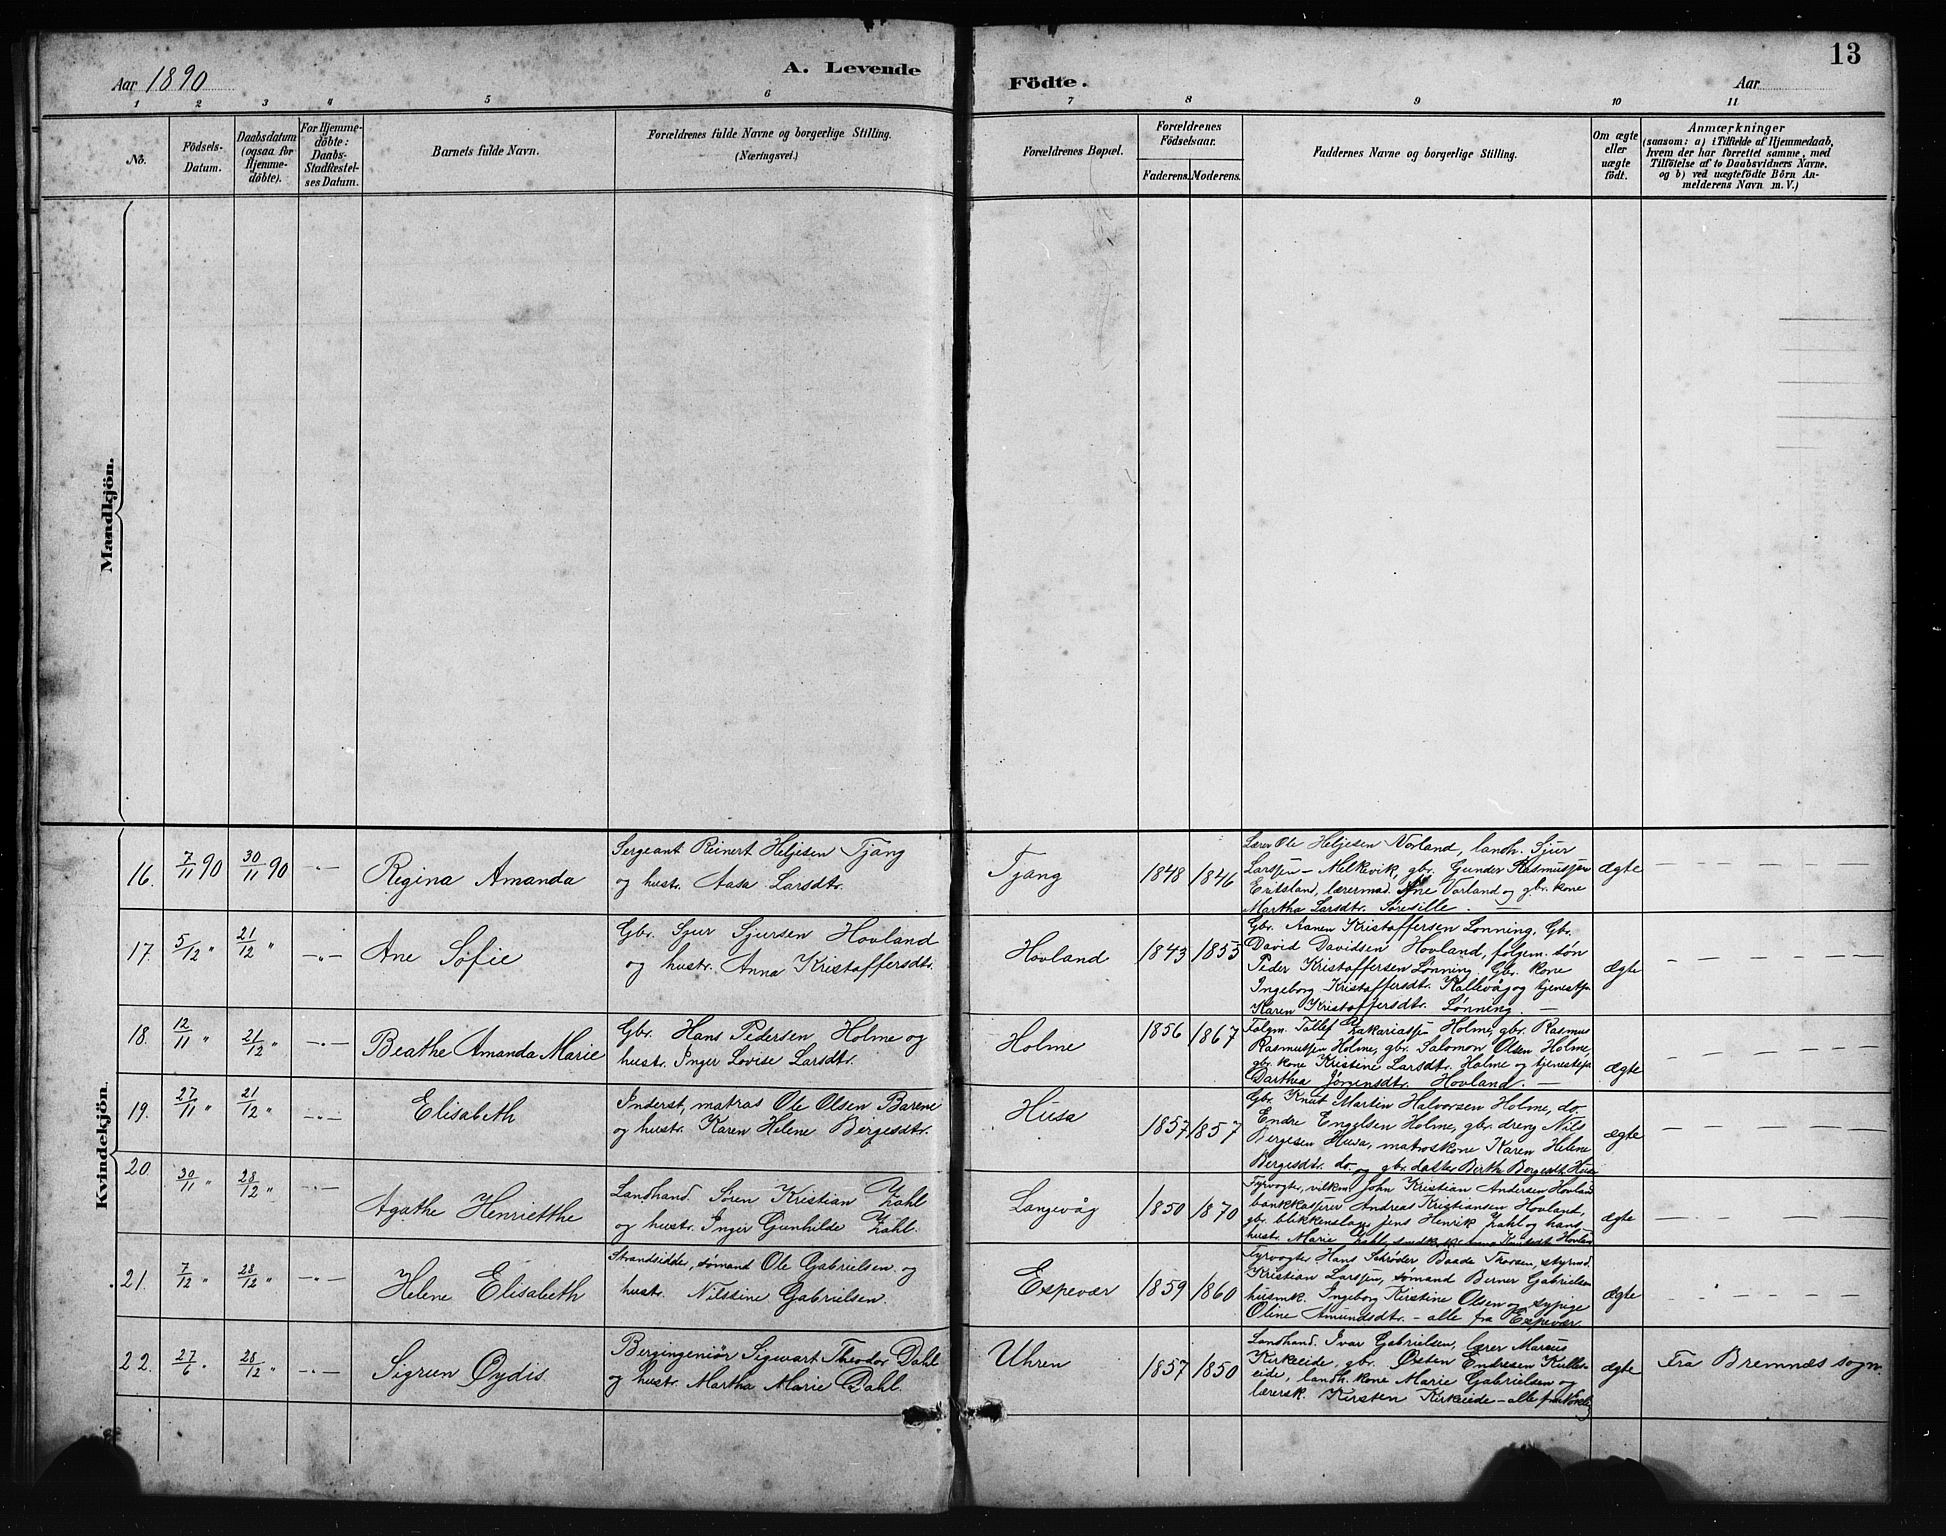 13
Aar 1890
A. Levende
Födte.
Aar
1 2 3 4 5 6 7 8 9 10 11
No.
Födsels-
Datum.
Daabsdatum
(ogsaa for
Hjemme-
döbte).
For Hjemme-
döbte:
Daabs-
Stadfæstel-
ses Datum.
Barnets fulde Navn.
Forældrenes fulde Navne og borgerlige Stilling.
(Næringsvei.)
Forældrenes Bopæl.
Forældrenes
Födselsaar.
Faderens. Moderens.
Faddernes Navne og borgerlige Stilling.
Om ægte
eller
uægte
födt.
Anmærkninger
(saasom: a) i Tilfælde af Hjemmedaab,
hvem der har forrettet samme, med
Tilföielse af to Daabsvidners Navne.
og b) ved uægtefödte Börn An-
melderens Navn m. V.)
Mandkjön.
Kvindekjön.
16. 7/11 90 30/11 90 —"—
Regina Amanda
Sergeant Reinert Heljesen Tjong
og hustr. Aasa Larsdtr.
Tjong
1848 1846
Lærer Ole Heljesen Vorland, landh. Sjur
Larssen – Melkevik, gbr. Gunder Rasmussen
lærermad. Ane Vorland og gbr. kone
Martha Larsdtr.
ægte — — — — —
17. 5/12 " 21/12 " —"—
Ane Sofie
Gbr. Sjur Sjursen Hovland
og hustr. Anna Kristoffersdtr.
Hovland
1843 1855
Gbr. Aanen Kristoffersen Lønning. Gbr.
David Davidsen Hovland, folgem. søn
Peder Kristoffersen Lønning. Gbr. kone
Ingeborg Kristoffersdtr. Kallevåg og tjenestp.
Karen Kristoffersdtr. Lønning. —
ægte — — — — —
18. 12/11 " 21/12 " —"—
Beathe Amanda Marie
Gbr. Hans Pedersen Holme og
hustr. Inger Lovise Larsdtr.
Holme
1856 1867
Folgm. Tollef Zakariassen Holme, gbr. Rasmus
Rasmussen Holme, gbr. Salomon Olsen Holme,
gbr. kone Kristine Larsdtr. Holme og tjenestep.
Darthea Jørgensdtr. Hovland. —
ægte — — — — —
19. 27/11 " 21/12 " —"—
Elisabeth
Inderst, matros Ole Olsen Barene
og hustr. Karen Helene Bergesdtr.
Husa
1857 1857
Gbr. Knut Martin Halvorsen Holme, do
Endre Engelsen Holme, gbr. dreng Nils
Bergesen Husa, matroskone Karen Helene
Bergesdtr. do og gbr. datter Berthe Bergesdt. Husa
ægte — — — — —
20 30/11 " 28/12 " —"—
Agathe Henrietthe
Landhand. Søren Kristian Zahl
og hustr. Inger Gunhilde Zahl.
Langevåg
1850 1870
Fyrvogter, John Kristian Andersen Hovland
bankkasser Andreas Kristiansen Hovland,
gbr. blikkenslager Jens Henrik Zahl og hans
hustr. Marie Zahl, Anna Knutsdt. Hovland
ægte — — — — —
21. 7/12 " 28/12 " —"—
Helene Elisabeth
Strandsidder, sømand Ole Gabrielsen og
hustr. Nilsine Gabrielsen.
Espevær
1859 1860
Fyrvogter Hans Schrøder Baade Thorsen, styrmd.
Kristian Larssen, sømand Berner Gabrielsen
husmk. Ingeborg Kirstine Olsen og sypige
Oline Amundsdtr. – alle fra Espevær.
ægte — — — — —
22. 27/6 " 28/12 " —"—
Sigrun Øydis.
Bergingeniør Sigwart Theodor Dahl
og hustr. Martha Marie Dahl.
Uhren
1857 1850
Landhand. Ivar Gabrielsen, lærer Marius
Kirkeeide, gbr. Østen Endresen Kulle-
eide, landh. kone Marie Gabrielsen og
lærersk. Kirsten Kirkeeide – alle fra
ægte
Fra Bremnæs sogn.